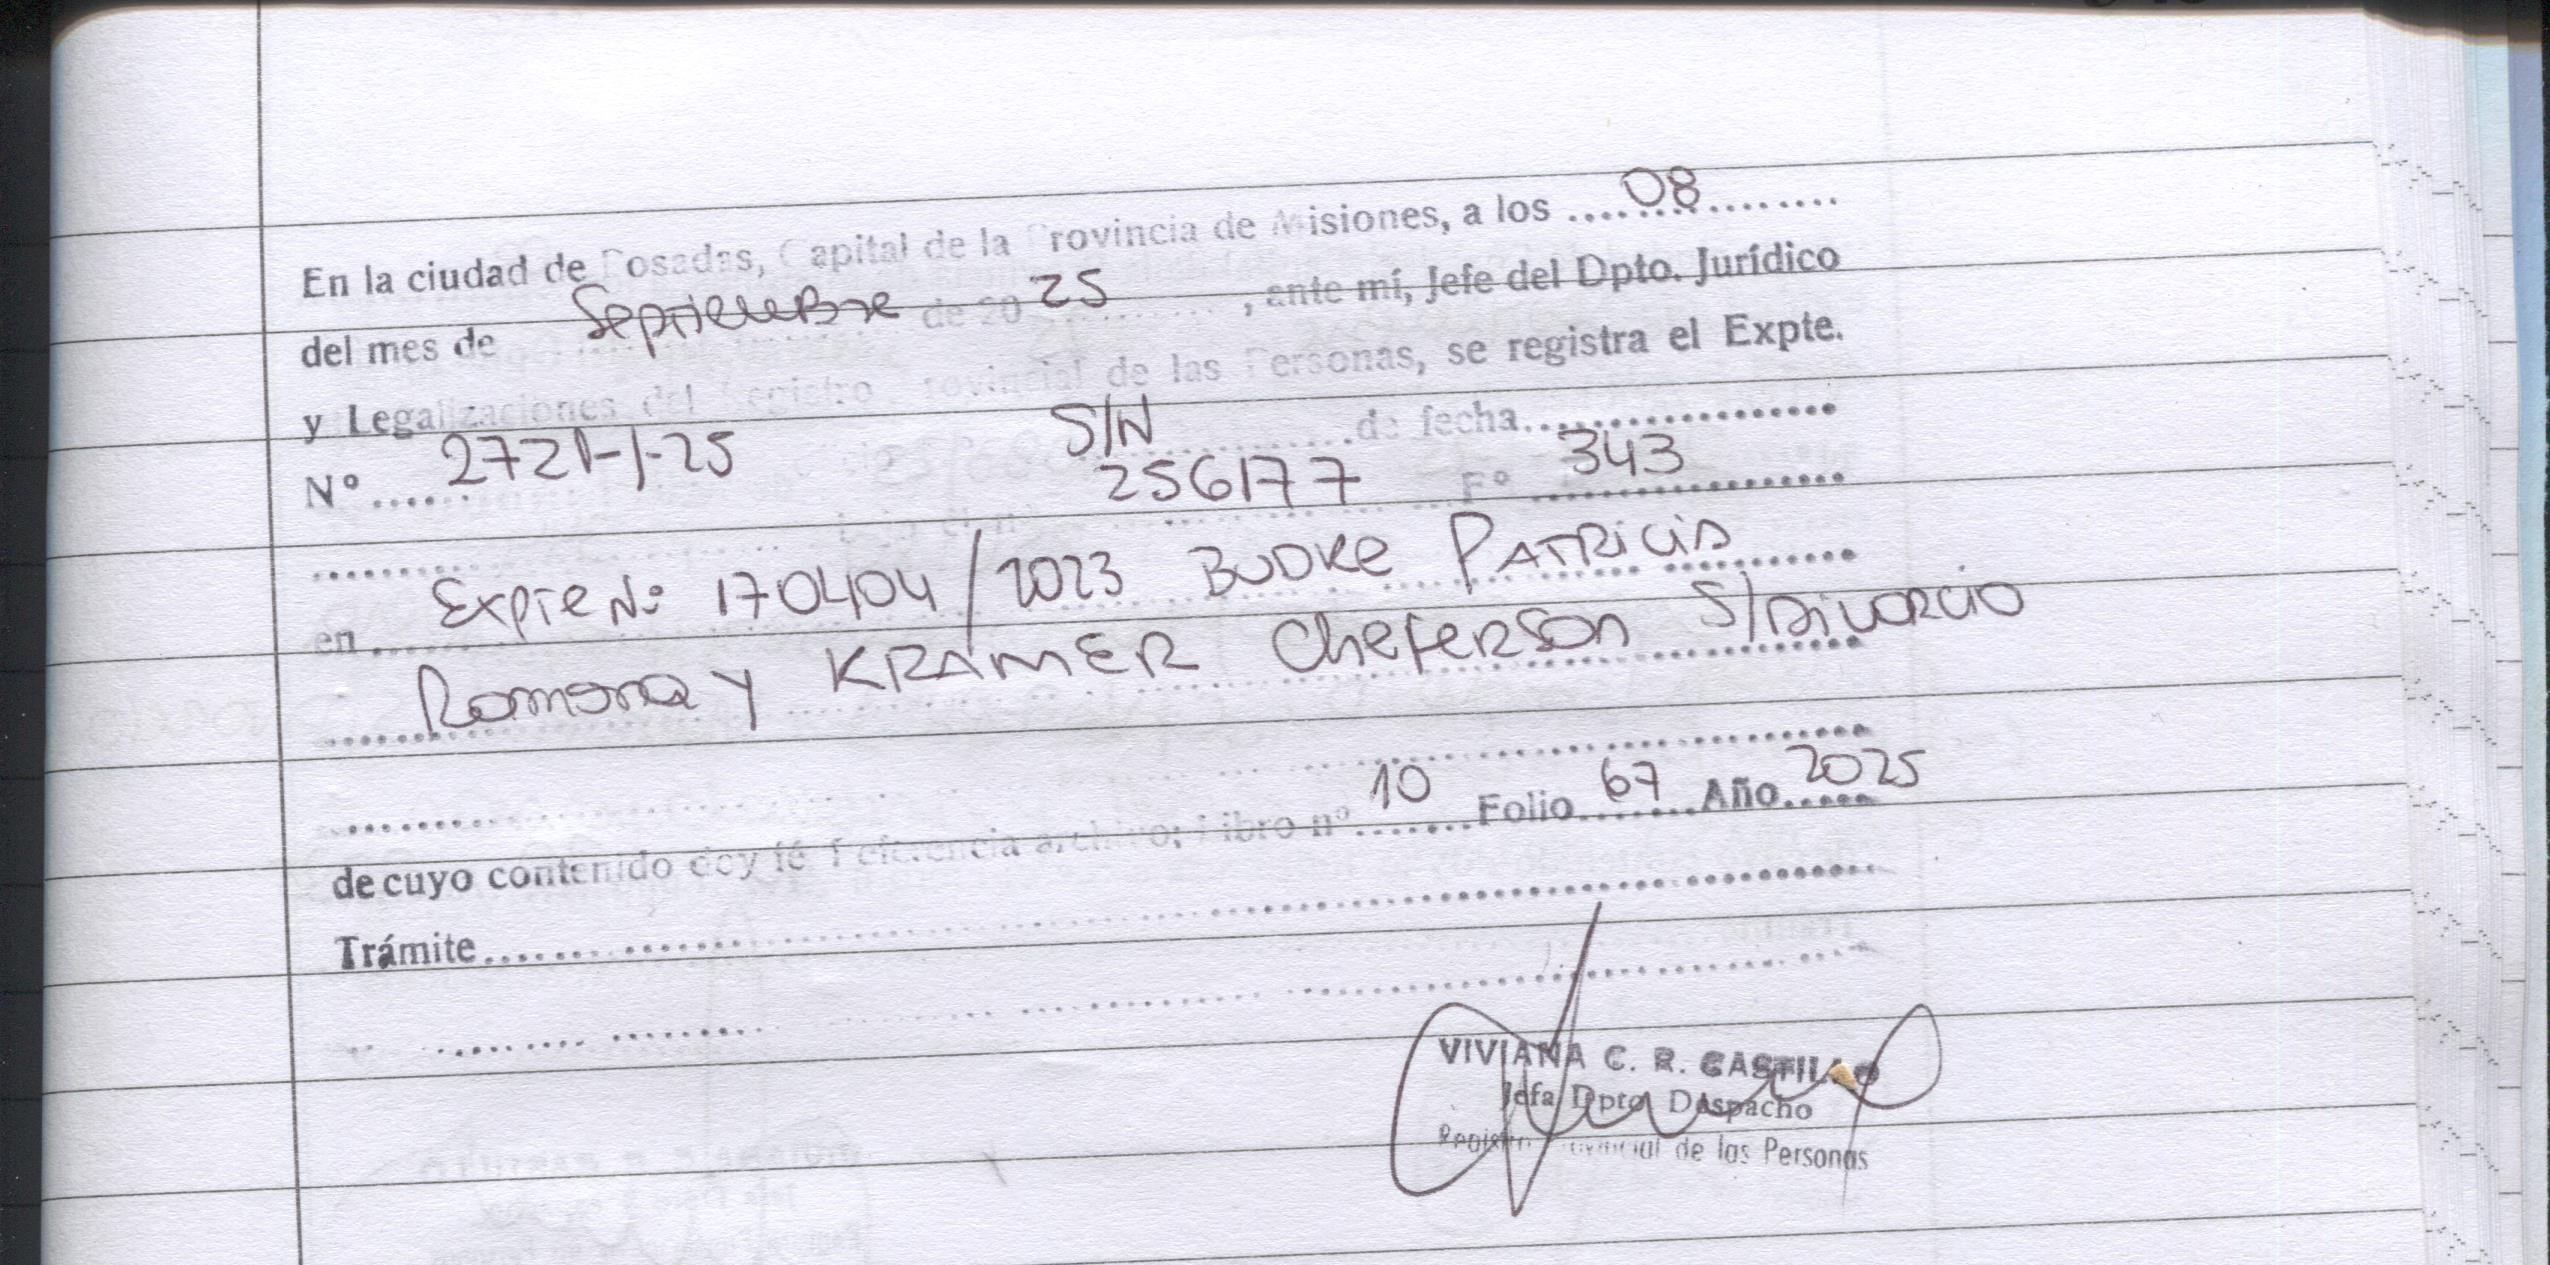 En la ciudad de Posadas, Capital de la Provincia de Misiones, a los .... 08 ........
del mes de Septiembre de 20 25 ........, ante mí, Jefe del Dpto. Jurídico
y Legalizaciones del Registro Provincial de las Personas, se registra el Expte.
Nº .... 2721-1-25 S/N ........ de fecha ................
256177 Fº 343
en Expte Nº 170404/2023 BUDKE PATRICIA
Ramona y KRAMER Cheferson S/Divorcio
de cuyo contenido doy fé Referencia archivo; Libro nº 10 Folio 67 Año 2025
Trámite
VIVIANA C. R. CASTILLO
Jefa Dpto Despacho
Registro Provincial de las Personas